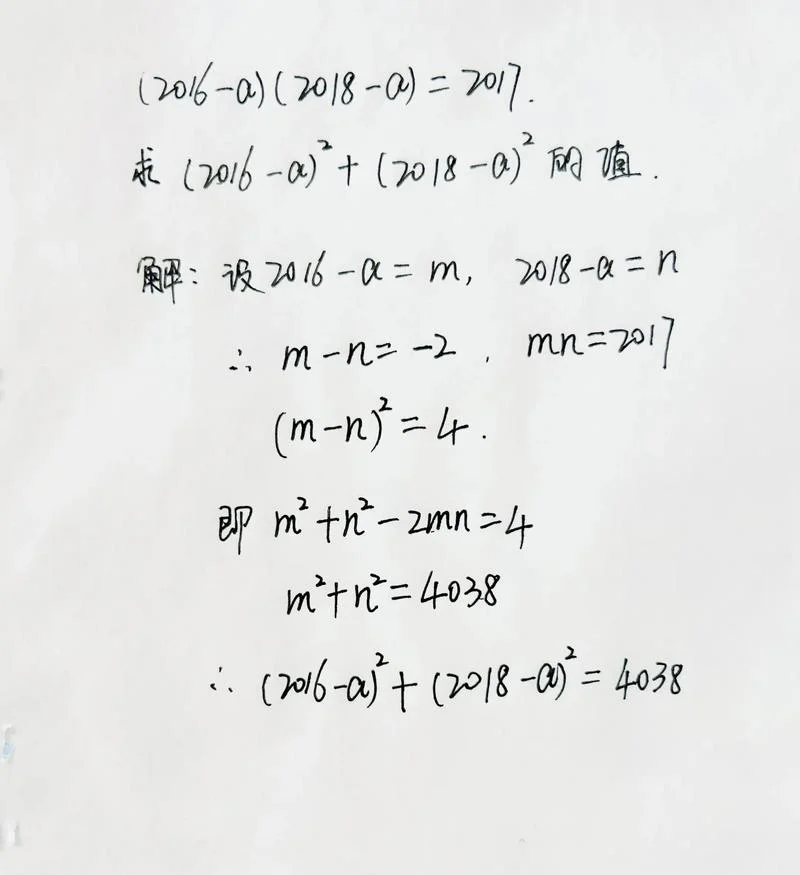 (2016-a)(2018-a)=2017.
求 (2016-a)²+(2018-a)² 的值.
解: 设2016-a=m, 2018-a=n
∴ m-n=-2 , mn=2017
(m-n)²=4.
即 m²+n²-2mn=4
m²+n²=4038
∴ (2016-a)²+(2018-a)²=4038